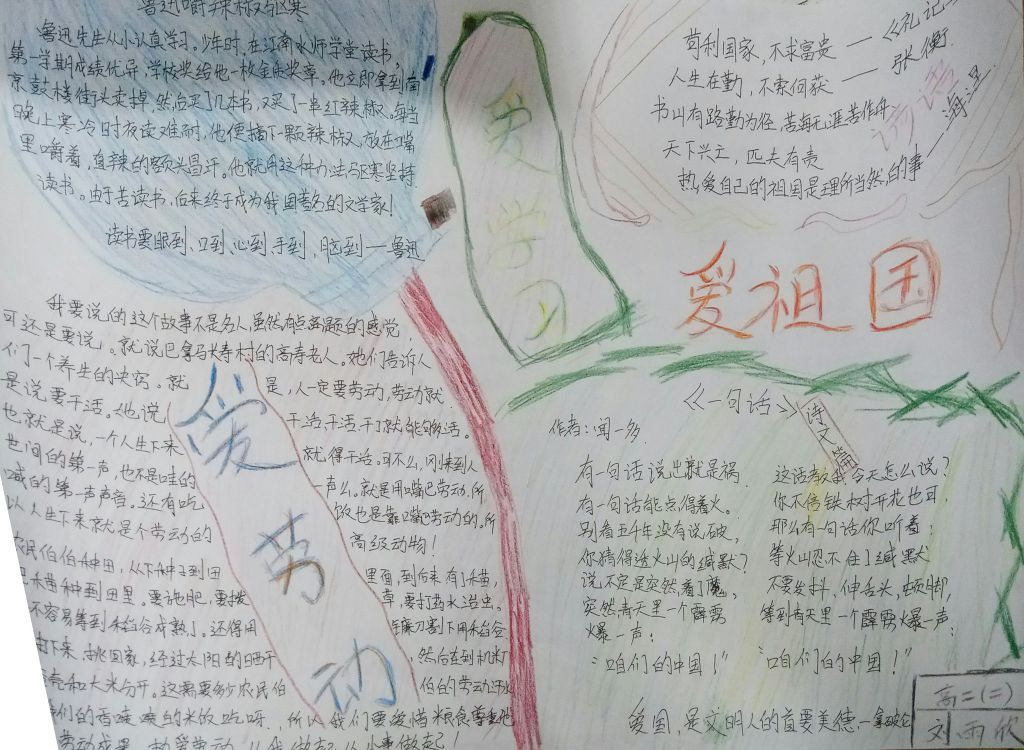 鲁迅嚼辣椒驱寒
鲁迅先生从小认真学习。少年时,在江南水师学堂读书,
第一学期成绩优异,学校奖给他一枚金质奖章。他立即拿到南
京鼓楼街头卖掉,然后买了几本书,又买了一串红辣椒。每当
晚上寒冷时夜读难耐,他便摘下一颗辣椒,放在嘴
里嚼着,直辣的额头冒汗。他就用这种办法驱寒坚持
读书。由于苦读书,后来终于成为我国著名的文学家!
读书要眼到、口到、心到、手到、脑到——鲁迅
爱学习
苟利国家,不求富贵——《礼记》
人生在勤,不索何获——张衡
书山有路勤为径,苦海无涯苦作舟
天下兴亡,匹夫有责
热爱自己的祖国是理所当然的事——海涅
爱祖国
我要说的这个故事不是名人,虽然有点离题的感觉,
可还是要说。就说巴拿马长寿村的高寿老人。她们告诉人
们一个养生的诀窍。就是,人一定要劳动,劳动就
是说要干活。《他说干活,干活,干了就能够活。
也就是说,一个人生下来就得干活。可不么,刚来到人
世间的第一声,也不是哇的一声么。就是用嘴巴劳动,所
喊的第一声声音。还有吃饮也是靠嘴巴劳动的。所
以人生下来就是个劳动的高级动物!
爱劳动
农民伯伯种田,从下种子到田里面,到后来有了禾苗,
禾苗种到田里。要施肥,要拨草,要打药水治虫。
不容易等到稻谷成熟了。还得用镰刀割下用稻谷
下来,挑回家,经过太阳的晒干,然后在到机米厂
壳和大米分开。这需要多少农民伯伯的劳动汗水
我们的香喷喷的米饭吃呀。所以我们要爱惜粮食尊重他
劳动成果,热爱劳动,从我做起从小事做起!
《一句话》
诗文篇
作者:闻一多
有一句话说出就是祸,
有一句话能点得着火。
别看五千年没有说破,
你猜得透火山的缄默?
说不定是突然着了魔,
突然青天里一个霹雳
爆一声:
“咱们的中国!”
这话教我今天怎么说?
你不信铁树开花也可,
那么有一句话你听着:
等火山忍不住了缄默
不要发抖,伸舌头,顿脚,
等到青天里一个霹雳爆一声:
“咱们的中国!”
爱国,是文明人的首要美德——拿破仑
高二(二)
刘雨欣